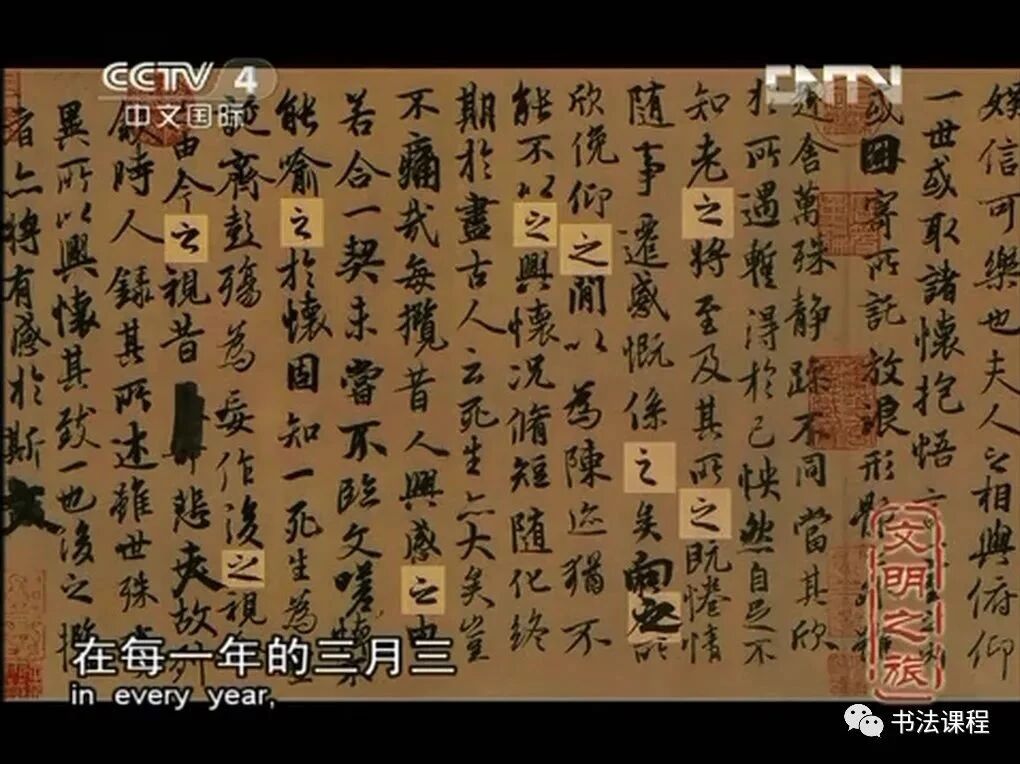 CCTV 4
中文国际
CNTV
娱信可樂也夫人之相與俯仰
一世或取諸懷抱悟
或因寄所託放浪形
舍萬殊静躁不同當其欣
於所遇暫得於己怏然自足不
知老之將至及其所之既惓情
隨事遷感慨係之矣向之所
欣俛仰之閒以為陳迹猶不
能不以之興懷況脩短隨化終
期於盡古人云死生亦大矣豈
不痛哉每攬昔人興感之由
若合一契未嘗不臨文嗟悼不
能喻之於懷固知一死生為
誕齊彭殤為妄作後之視
由今之視昔悲夫故列
敘時人錄其所述雖世殊事
異所以興懷其致一也後之攬
者亦將有感於斯文
文明之旅
在每一年的三月三
in every year,
书法课程